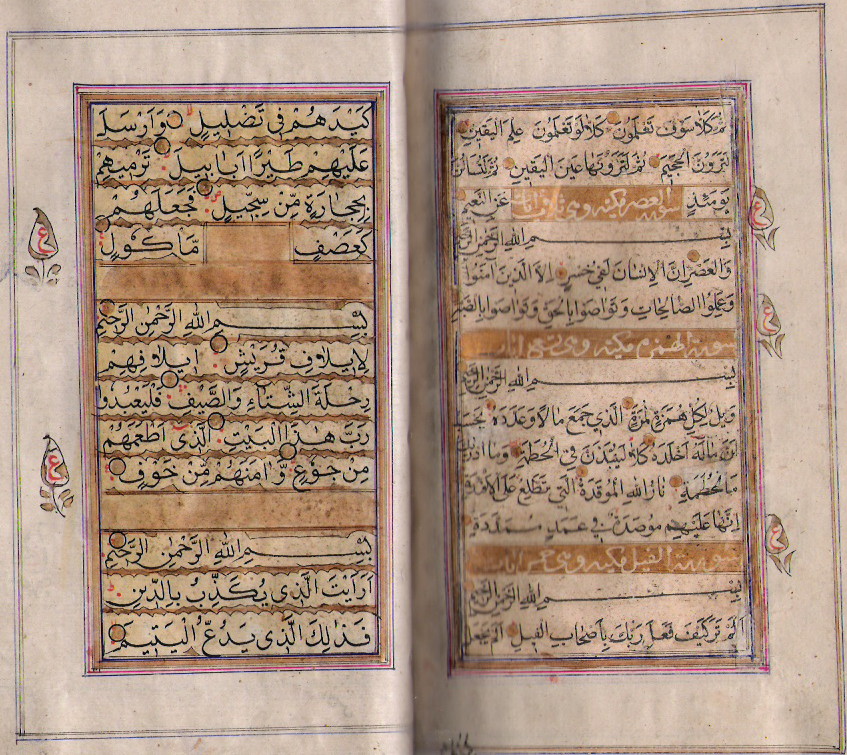 ثُمَّ كَلَّا سَوْفَ تَعْلَمُونَ كَلَّا لَوْ تَعْلَمُونَ عِلْمَ الْيَقِينِ
لَتَرَوُنَّ الْجَحِيمَ ثُمَّ لَتَرَوُنَّهَا عَيْنَ الْيَقِينِ ثُمَّ لَتُسْأَلُنَّ
يَوْمَئِذٍ عَنِ النَّعِيمِ
سورة العصر مكية وهي ثلاث ايات
بِسْمِ اللهِ الرَّحْمٰنِ الرَّحِيمِ
وَالْعَصْرِ إِنَّ الْإِنْسَانَ لَفِي خُسْرٍ إِلَّا الَّذِينَ آمَنُوا
وَعَمِلُوا الصَّالِحَاتِ وَتَوَاصَوْا بِالْحَقِّ وَتَوَاصَوْا بِالصَّبْرِ
سورة الهمزة مكية وهي تسع ايات
بِسْمِ اللهِ الرَّحْمٰنِ الرَّحِيمِ
وَيْلٌ لِكُلِّ هُمَزَةٍ لُمَزَةٍ الَّذِي جَمَعَ مَالًا وَعَدَّدَهُ يَحْسَبُ
أَنَّ مَالَهُ أَخْلَدَهُ كَلَّا لَيُنْبَذَنَّ فِي الْحُطَمَةِ وَمَا أَدْرَاكَ
مَا الْحُطَمَةُ نَارُ اللهِ الْمُوقَدَةُ الَّتِي تَطَّلِعُ عَلَى الْأَفْئِدَةِ
إِنَّهَا عَلَيْهِمْ مُوصَدَةٌ فِي عَمَدٍ مُمَدَّدَةٍ
سورة الفيل مكية وهي خمس ايات
بِسْمِ اللهِ الرَّحْمٰنِ الرَّحِيمِ
أَلَمْ تَرَ كَيْفَ فَعَلَ رَبُّكَ بِأَصْحَابِ الْفِيلِ أَلَمْ يَجْعَلْ
كَيْدَهُمْ فِي تَضْلِيلٍ وَأَرْسَلَ
عَلَيْهِمْ طَيْرًا أَبَابِيلَ تَرْمِيهِمْ
بِحِجَارَةٍ مِّنْ سِجِّيلٍ فَجَعَلَهُمْ
كَعَصْفٍ مَّأْكُولٍ
بِسْمِ اللهِ الرَّحْمٰنِ الرَّحِيمِ
لِإِيلَافِ قُرَيْشٍ إِيلَافِهِمْ
رِحْلَةَ الشِّتَآءِ وَالصَّيْفِ فَلْيَعْبُدُوا
رَبَّ هٰذَا الْبَيْتِ الَّذِي أَطْعَمَهُمْ
مِنْ جُوعٍ وَّاٰمَنَهُمْ مِّنْ خَوْفٍ
بِسْمِ اللهِ الرَّحْمٰنِ الرَّحِيمِ
اَرَاَيْتَ الَّذِي يُكَذِّبُ بِالدِّينِ
فَذٰلِكَ الَّذِي يَدُعُّ الْيَتِيمَ